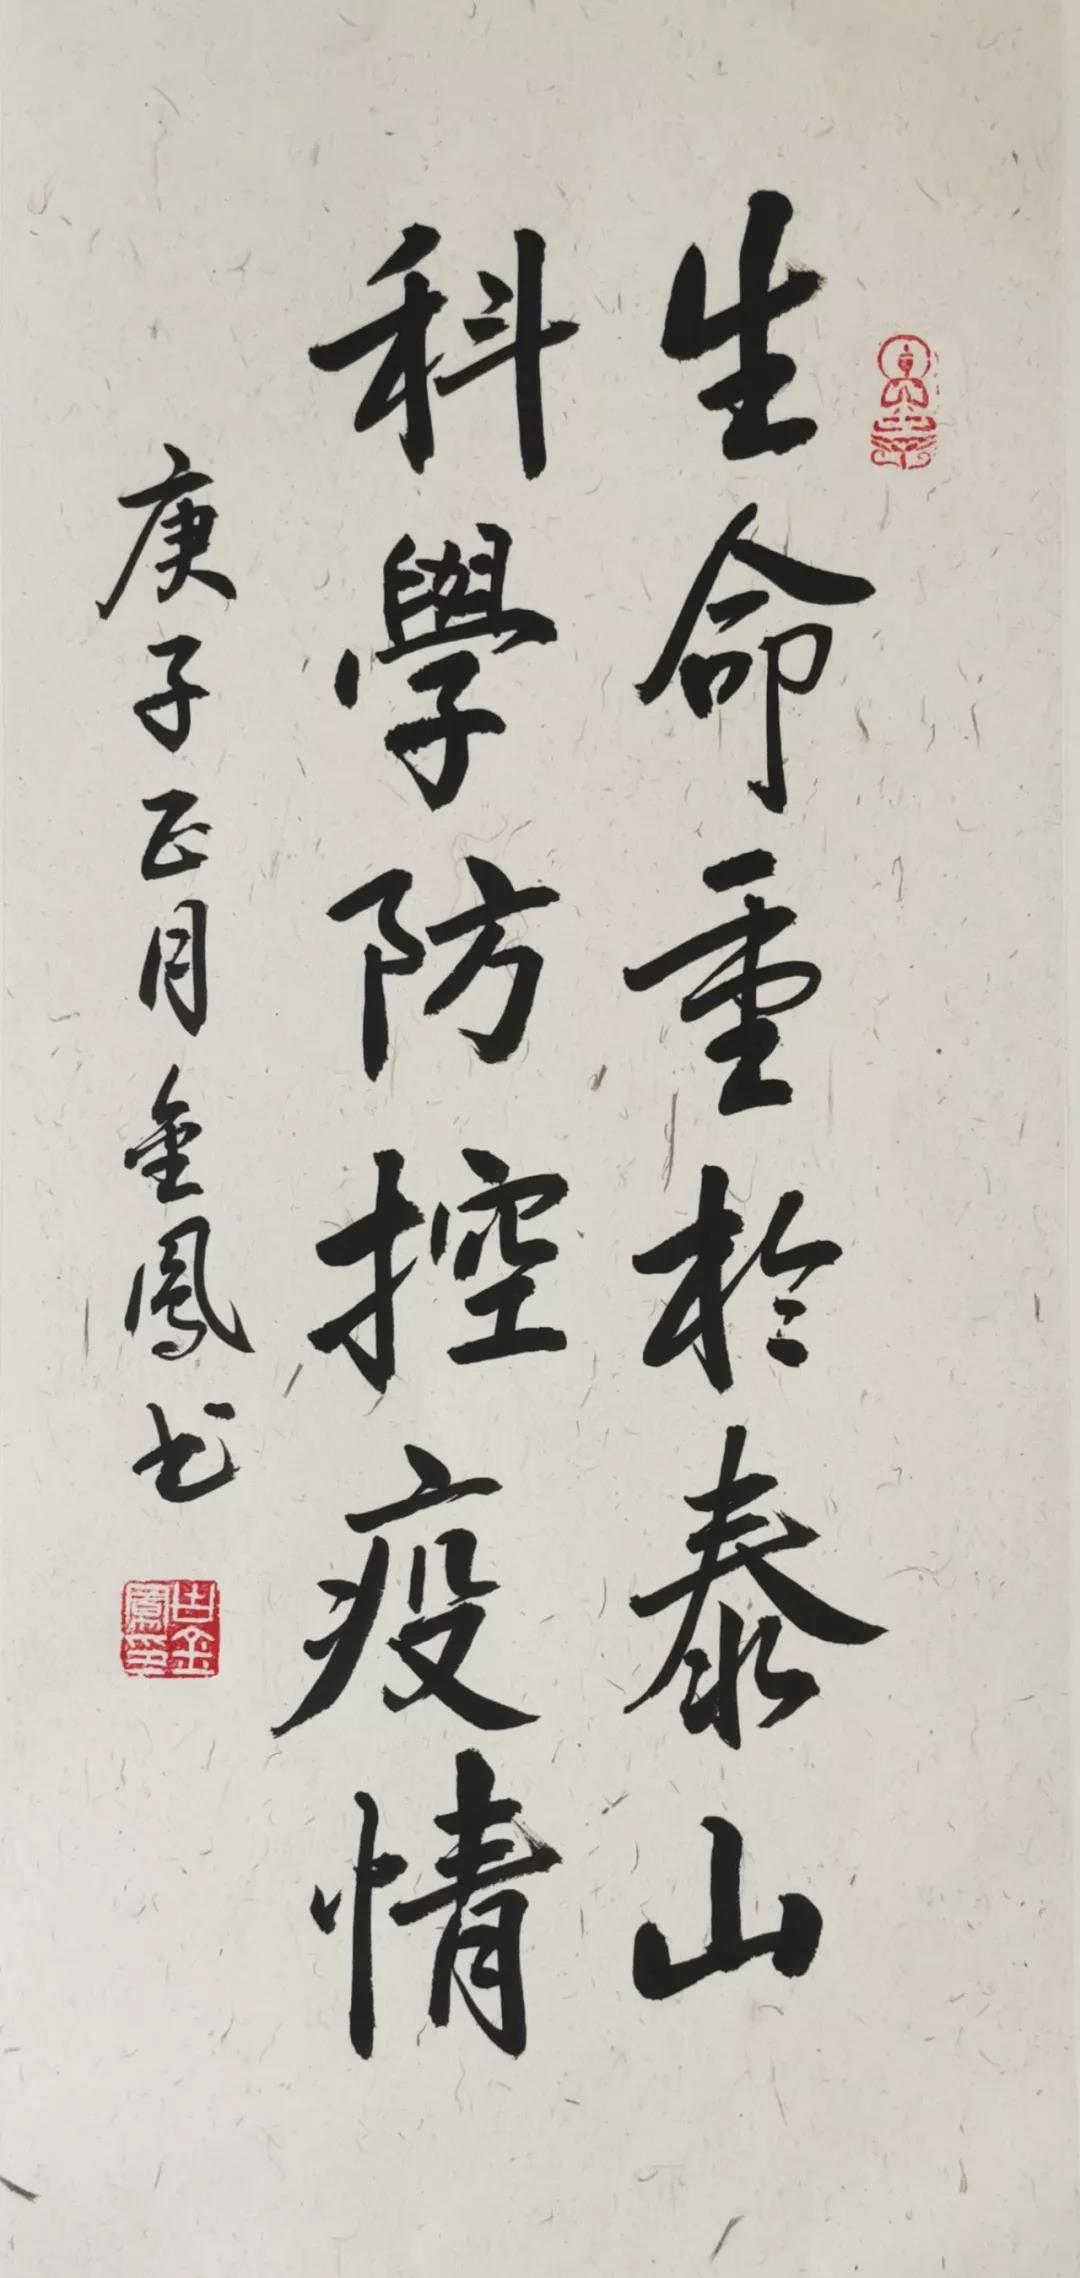 生命重於泰山
科學防控疫情
庚子正月金鳳书